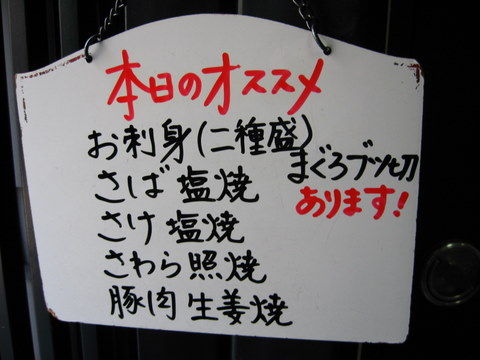 本日のオススメ
お刺身(二種盛)
さば塩焼
さけ塩焼
さわら照焼
豚肉生姜焼
まぐろブツ切
あります!